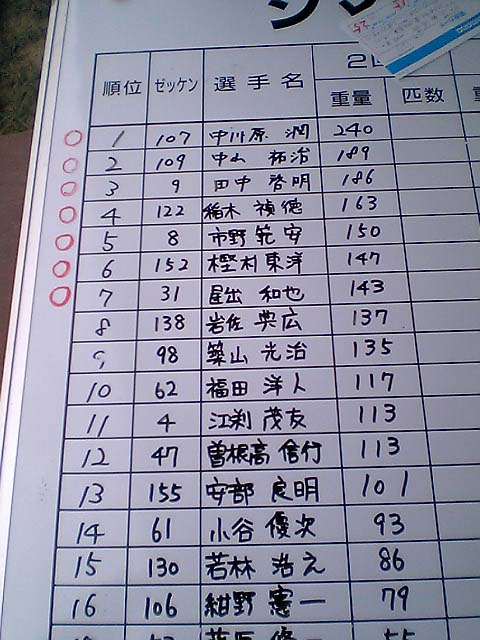 順位 ゼッケン 選手名 重量 匹数
○ 1 107 中川原 潤 240
○ 2 109 中山 祐治 189
○ 3 9 田中 啓明 186
○ 4 122 稲木 禎徳 163
○ 5 8 市野 範安 150
○ 6 152 樫村 東洋 147
○ 7 31 和也 143
8 138 岩佐 典広 137
9 98 築山 光治 135
10 62 福田 洋人 117
11 4 江刺 茂友 113
12 47 曽根高 信行 113
13 155 安部 良明 101
14 61 小谷 優次 93
15 130 若林 浩之 86
16 106 紺野 憲一 79